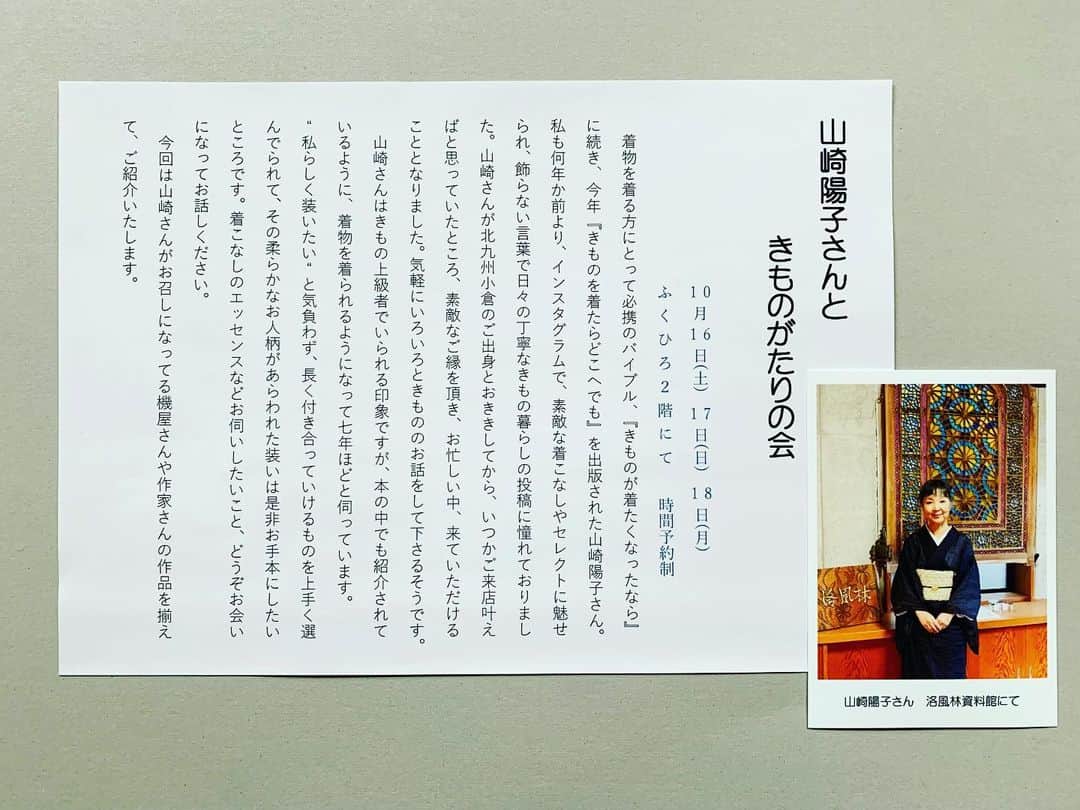 山崎陽子さんと
きものがたりの会
10月16日(土) 17日(日) 18日(月)
ふくひろ2階にて 時間予約制
着物を着る方にとって必携のバイブル、『きものが着たくなったなら』
に続き、今年『きものを着たらどこへでも』を出版された山崎陽子さん。
私も何年か前より、インスタグラムで、素敵な着こなしやセレクトに魅せ
られ、飾らない言葉で日々の丁寧なきもの暮らしの投稿に憧れておりまし
た。山崎さんが北九州小倉のご出身とおききしてから、いつかご来店叶え
ばと思っていたところ、素敵なご縁を頂き、お忙しい中、来ていただける
こととなりました。気軽にいろいろときもののお話をして下さるそうです。
山崎さんはきもの上級者でいられる印象ですが、本の中でも紹介されて
いるように、着物を着られるようになって七年ほどと伺っています。
“私らしく装いたい“と気負わず、長く付き合っていけるものを上手く選
んでられて、その柔らかなお人柄があらわれた装いは是非お手本にしたい
ところです。着こなしのエッセンスなどお伺いしたいこと、どうぞお会い
になってお話しください。
今回は山崎さんがお召しになってる機屋さんや作家さんの作品を揃え
て、ご紹介いたします。
洛風林
山崎陽子さん 洛風林資料館にて